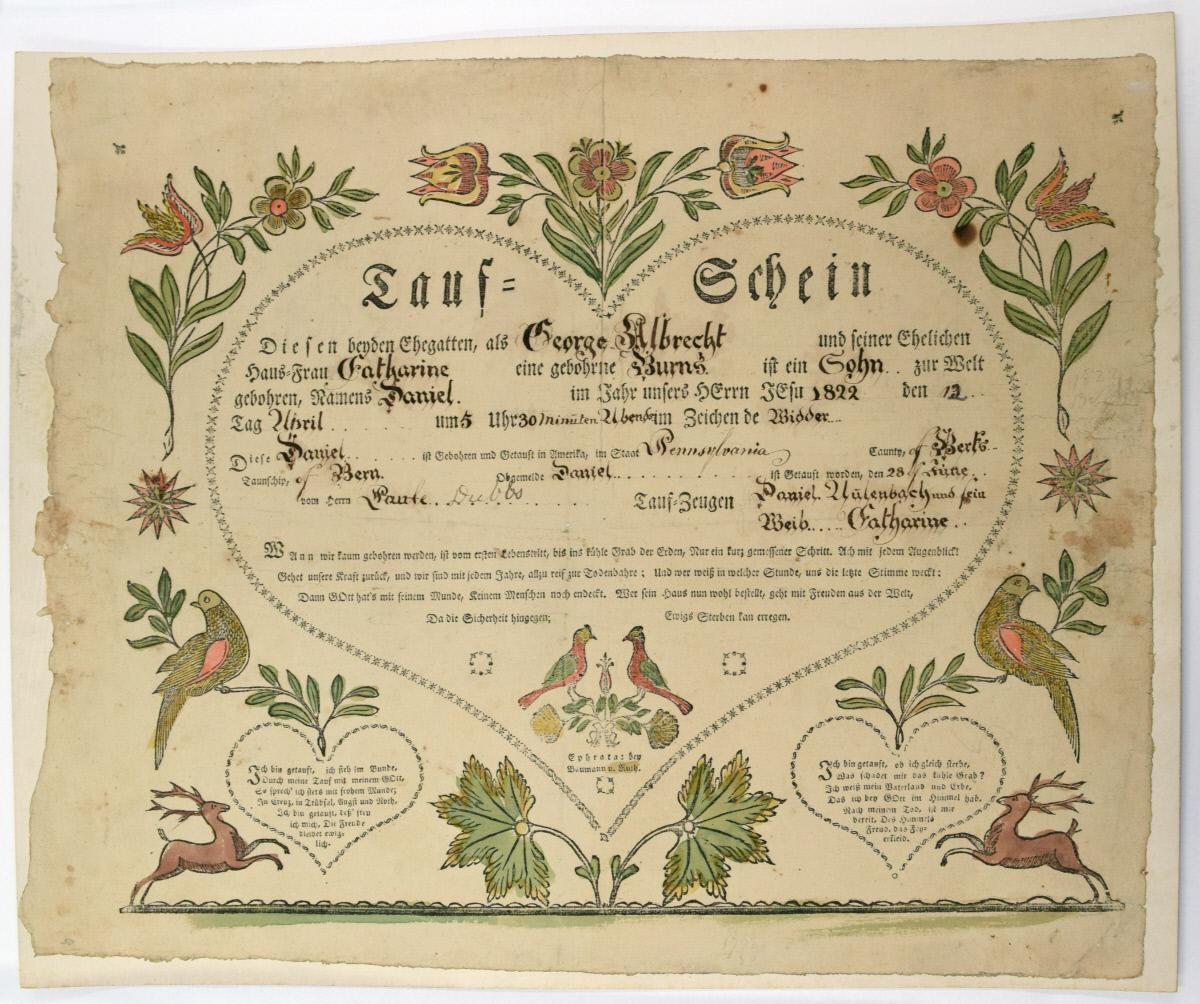 Tauf= Schein
Diesen beyden Ehegatten, als George Albrecht und seiner Ehelichen
Haus=Frau Catharine eine gebohrne Burns. ist ein Sohn.. zur Welt
gebohren, Namens Daniel. im Jahr unsers HErrn JEsu 1822 den 12..
Tag April um 5 Uhr 30 minuten Abends im Zeichen de Widder...
Diese Daniel ist Gebohren und Getauft in Amerika, im Staat Pennsylvania Caunty, of Berks
Taunschip, of Bern. Obgemelde Daniel. ist Getauft worden, den 28ſ June
vom Herrn Paule.. Dubbs Tauf=Zeugen Daniel. Aulenbach und sein
Weib.... Catharine..
Wann wir kaum gebohren werden, ist vom ersten Lebenstritt, bis ins kühle Grab der Erden, Nur ein kurz gemessener Schritt. Ach mit jedem Augenblick!
Gehet unsere Kraft zurück, und wir sind mit jedem Jahre, allzu reif zur Todenbahre; Und wer weiß in welcher Stunde, uns die letzte Stimme weckt:
Dann GOtt hat's mit seinem Munde, Keinem Menschen noch endeckt. Wer sein Haus nun wohl bestellt, geht mit Freuden aus der Welt,
Da die Sicherheit hingegen; Ewigs Sterben kan erregen.
Ephrata: bey
Baumann u. Ruth.
Ich bin getauft, ich steh im Bunde,
Durch meine Tauf mit meinem GOtt,
So sprech' ich stets mit frohem Munde;
In Creuz, in Trübsal, Angst und Noth,
Ich bin getauft, deß' freu
ich mich, Die Freude
bleibet ewig=
lich.
Ich bin getauft, ob ich gleich sterbe,
Was schadet mir das kühle Grab?
Ich weiß mein Vaterland und Erbe,
Das ich bey GOtt im Himmel hab.
Nach meinem Tod, ist mir
bereit, Des Himmels
Freud, das Fey=
erkleid.